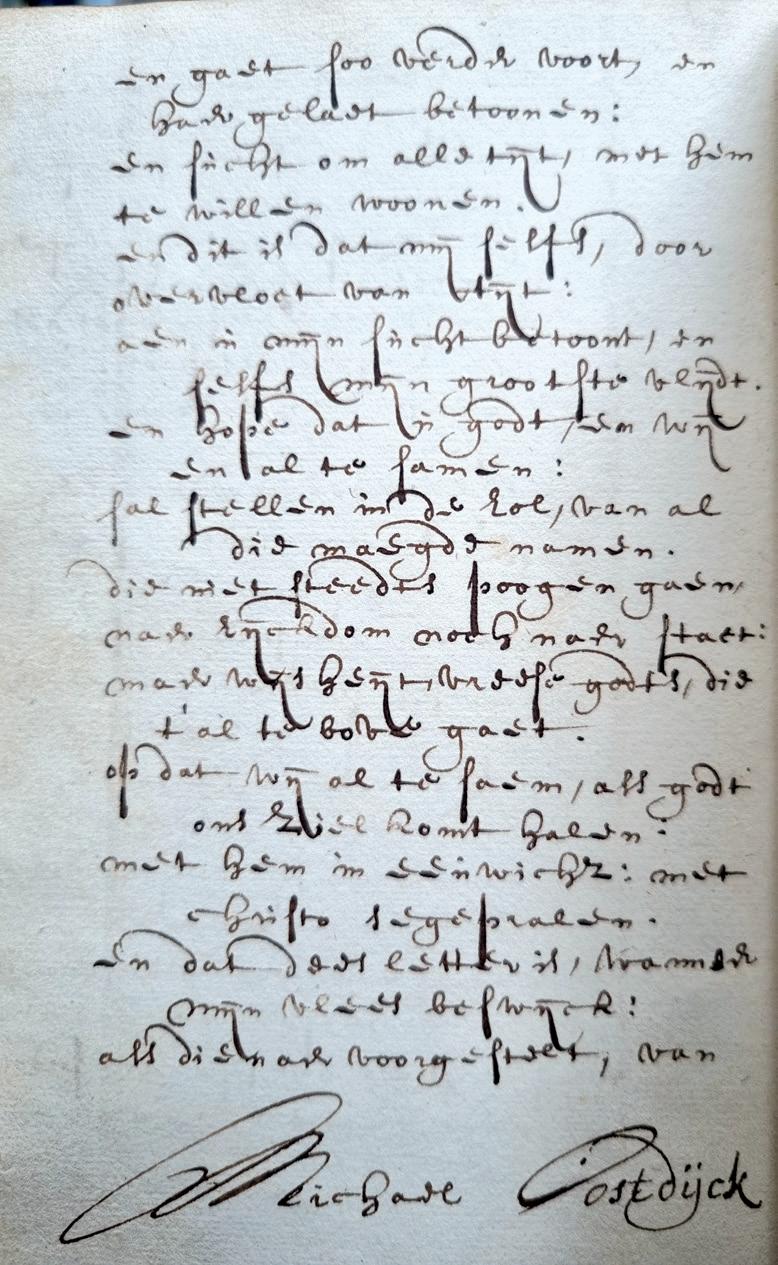 en gaet soo verder voort, en
haer gelaet betoonen:
en sucht om alle tijt, met hem
te willen woonen.
en dit is dat mij selfs, door
overvloet van vlijt:
aen in mijn sucht betoont, en
selfs mijn grootste vlijdt.
en hope dat ijn godt, en wij
en al te samen:
sal stellen in de Rol, van al
die maegde namen.
die niet steedts poogen gaen,
naer Rijckdom noch naer staet:
maer wijsheijt, vreese godts, die
t'al te bove gaet.
op dat wij al te saem, als godt
ons Ziel komt halen:
met hem in eeuwichz: met
christo segepralen.
en dat dees letter is, wanneer
mijn vlees beswijck:
als dienaer voorgestelt, van
Michael Oostdijck